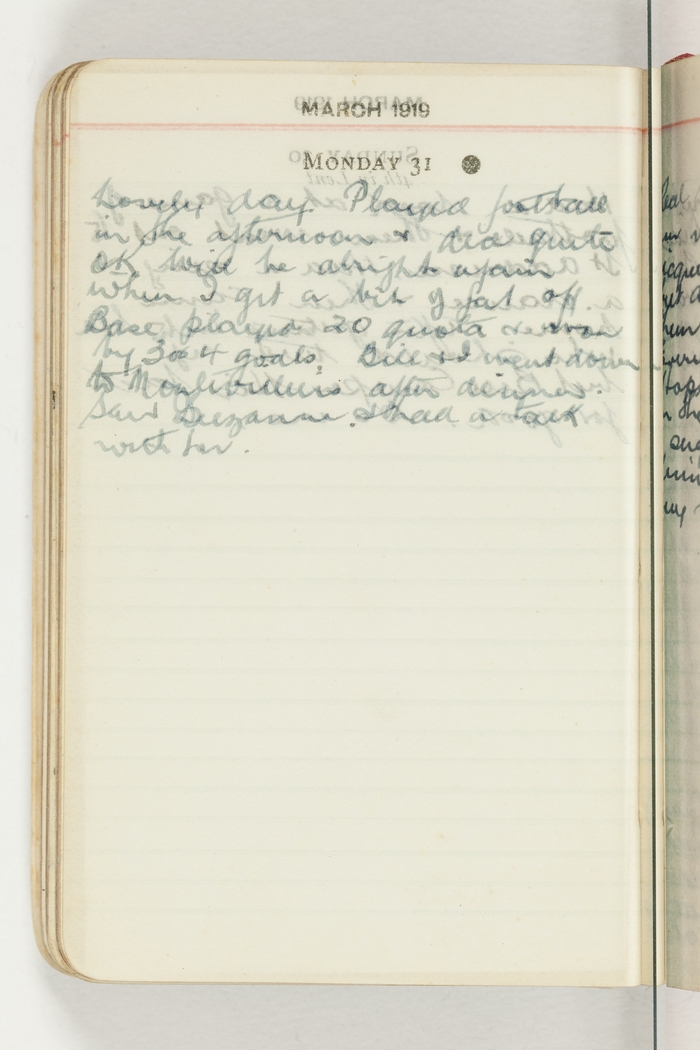 MARCH 1919
MONDAY 31
Lovely day. Played football
in the afternoon & did quite
OK, will be alright again
when I get a bit of fat off.
Base played 20 quota & won
by 3 or 4 goals. Bill & I went down
to Montivilliers after dinner.
Saw Suzanne. & had a talk
with her.